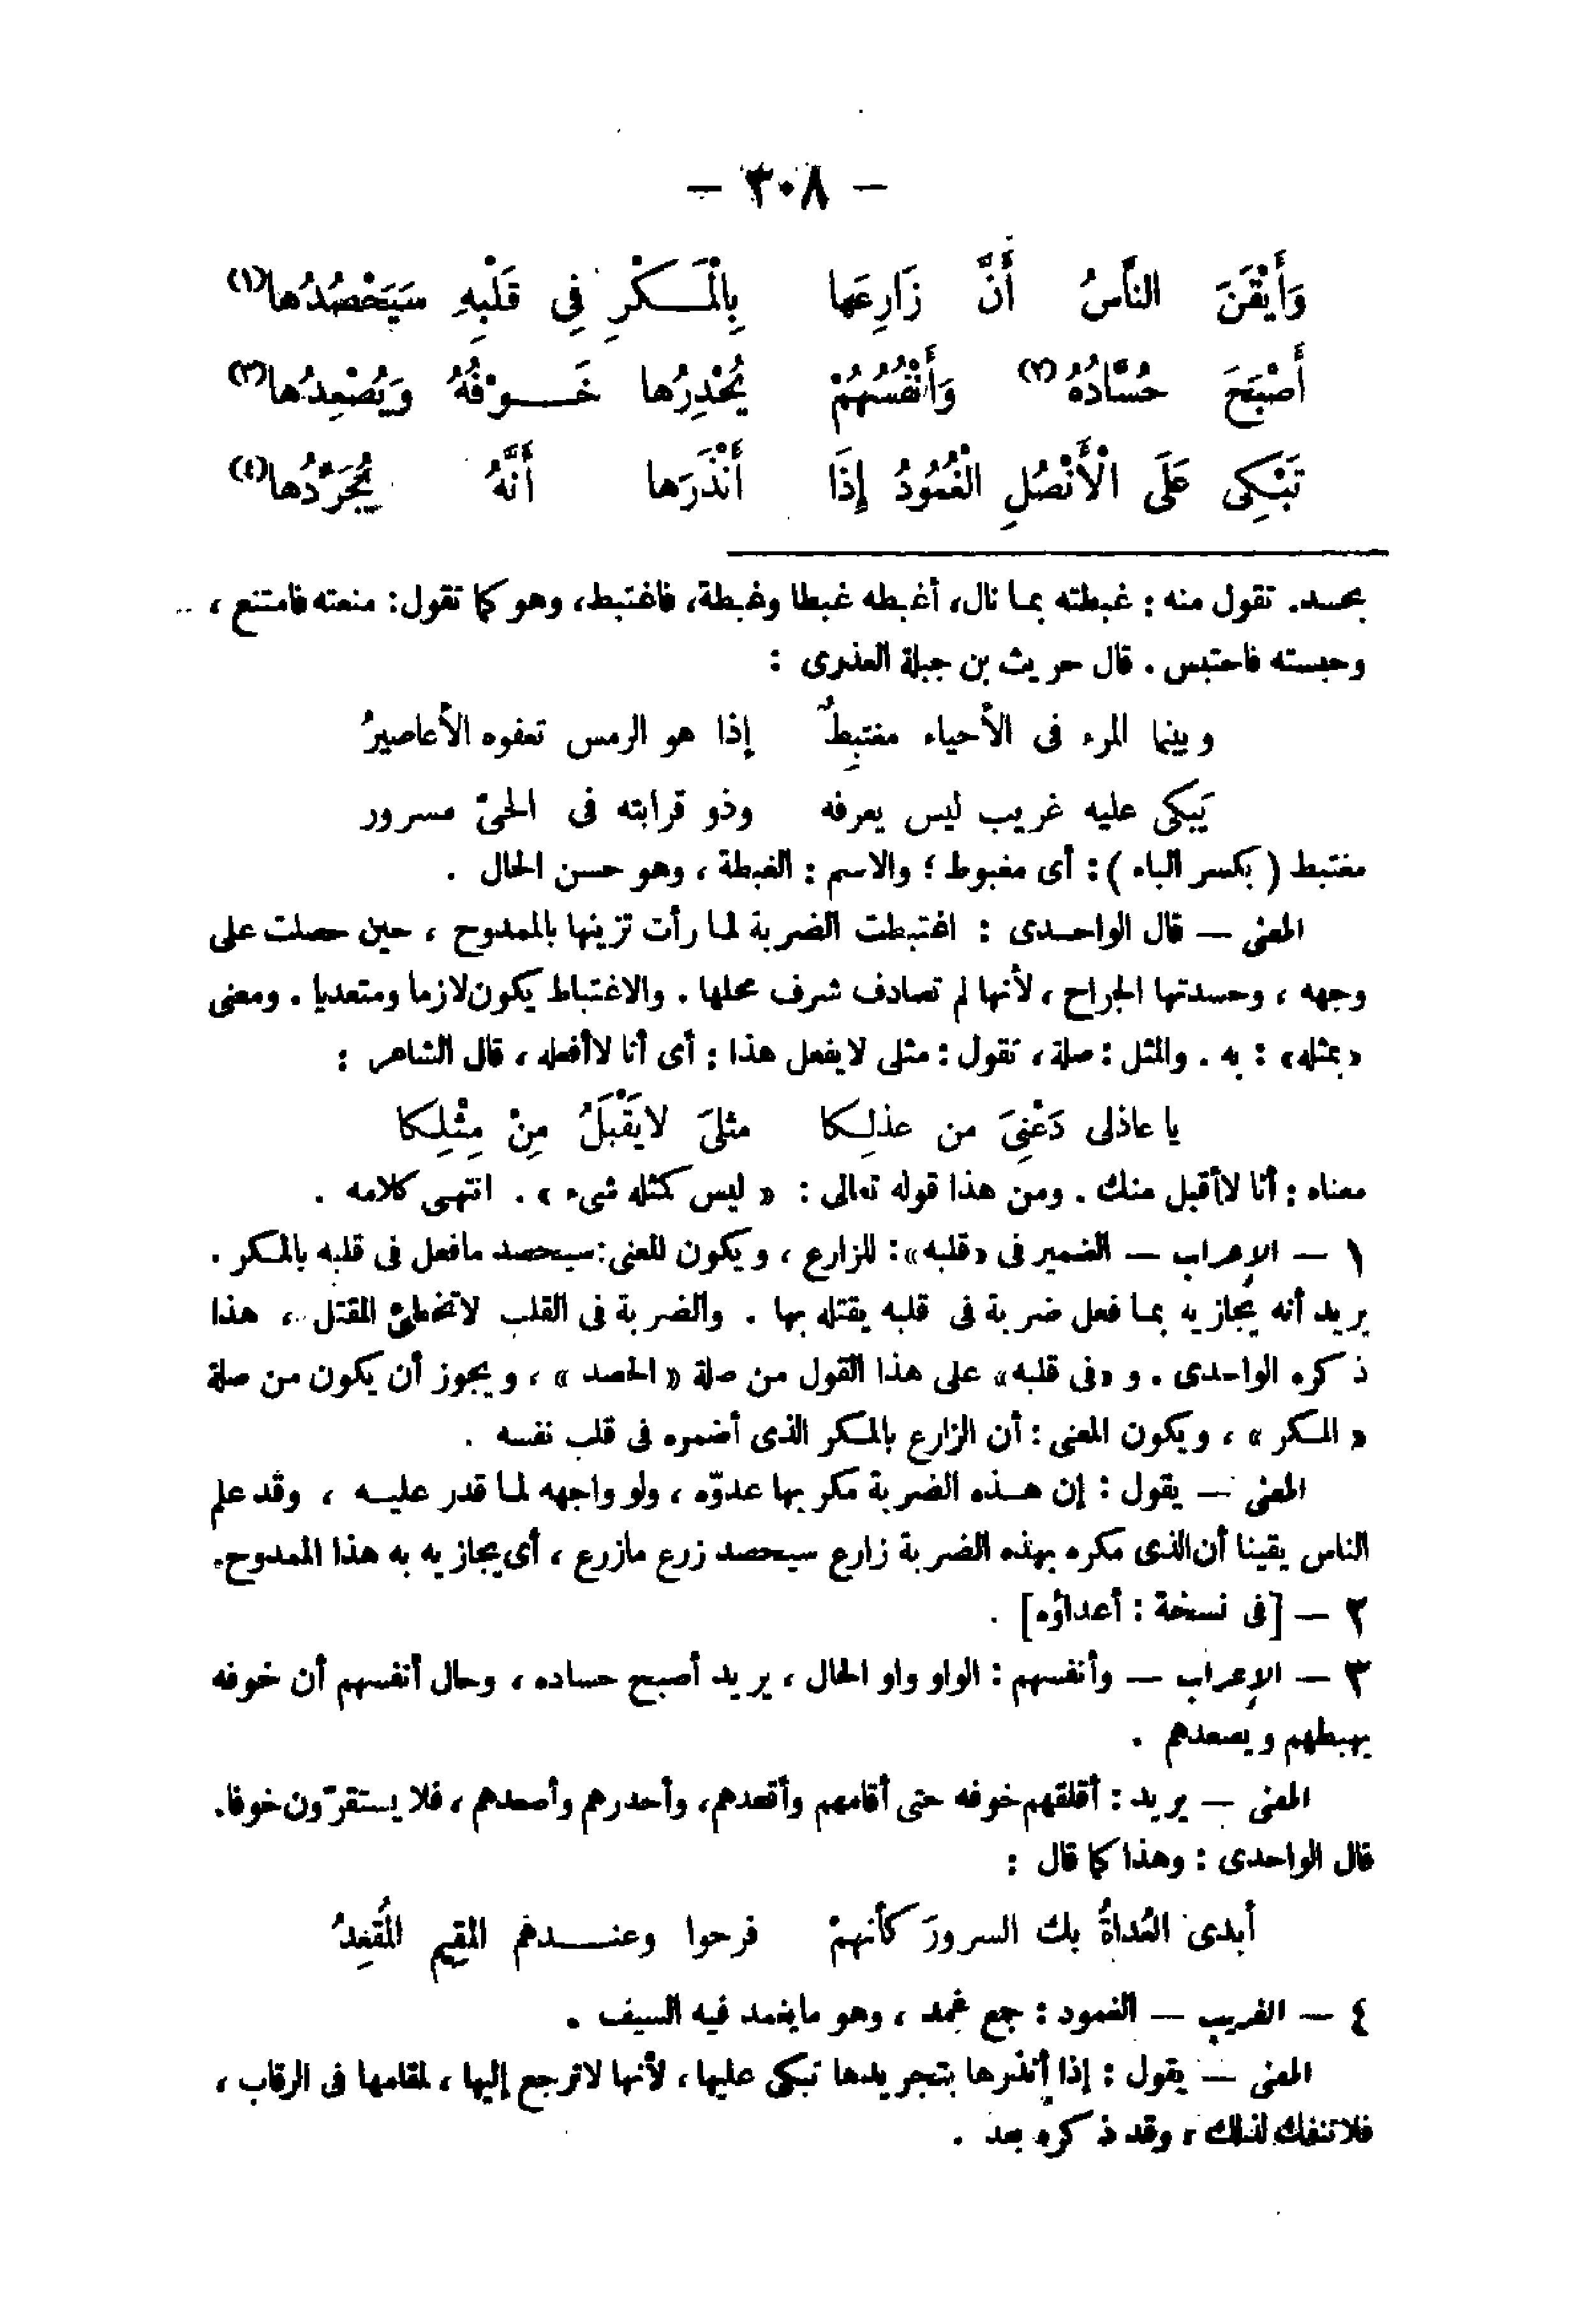 — ٣٠٨ —
وَأَيْقَنَ النَّاسُ أَنَّ زَارِعَها بِالْمَـكْرِ فِى قَلْبِهِ سَيَحْصُدُها(١)
أَصْبَحَ حُسَّادُهُ(٢) وَأَنْفُسُهُمْ يُحْدِرُها خَـوْفُهُ وَيُصْعِدُها(٣)
تَبْكِى عَلَى الْأَنْصُلِ الْغُمُودُ إِذَا أَنْذَرَها أَنَّهُ يُجَرِّدُها(٤)
بحسد. تقول منه : غبطته بمـا نال، أغبطه غبطا وغبطة، فاغتبط، وهو كما تقول: منعته فامتنع ،
وحبسته فاحتبس . قال حريث بن جبلة العذرى :
وبينما المرء فى الأحياء مغتبِطٌ إذا هو الرمس تعفوه الأعاصيرُ
يَبكى عليه غريب ليس يعرفه وذو قرابته فى الحىّ مسرور
مغتبط ( بكسر الباء ) : أى مغبوط ؛ والاسم : الغبطة ، وهو حسن الحال .
المعنى — قال الواحـدى : اغتبطت الضربة لمـا رأت تزينها بالممدوح ، حين حصلت على
وجهه ، وحسدتها الجراح ، لأنها لم تصادف شرف محلها . والاغتباط يكون لازما ومتعديا . ومعنى
«بمثله» : به . والمثل : صلة ، تقول : مثلى لا يفعل هذا : أى أنا لا أفعله ، قال الشاعر :
يا عاذلى دَعْنِىَ من عذلِـكا مثلىَ لا يَقْبَلُ مِنْ مِثْلِـكا
معناه : أنا لا أقبل منك . ومن هذا قوله تعالى : « ليس كمثله شىء » . انتهى كلامه .
١ — الإعراب — الضمير فى «قلبه» : للزارع ، ويكون المعنى : سيحصد مافعل فى قلبه بالمـكر .
يريد أنه يجازيه بمـا فعل ضربة فى قلبه يقتله بها . والضربة فى القلب لا تخطئ المقتل ، هذا
ذكره الواحدى . و «فى قلبه» على هذا القول من صلة « الحصد » ، ويجوز أن يكون من صلة
« المـكر » ، ويكون المعنى : أن الزارع بالمـكر الذى أضمره فى قلب نفسه .
المعنى — يقول : إن هـذه الضربة مكر بها عدوّه ، ولو واجهه لمـا قدر عليـه ، وقد علم
الناس يقينا أن الذى مكره بهذه الضربة زارع سيحصد زرع مازرع ، أى يجازيه به هذا الممدوح.
٢ — [فى نسخة : أعداؤه] .
٣ — الإعراب — وأنفسهم : الواو واو الحال ، يريد أصبح حساده ، وحال أنفسهم أن خوفه
يهبطهم ويصعدهم .
المعنى — يريد : أقلقهم خوفه حتى أقامهم وأقعدهم، وأحدرهم وأصعدهم ، فلا يستقرّون خوفا.
قال الواحدى : وهذا كما قال :
أبدى العُداةُ بك السرورَ كأنهمْ فرحوا وعنـــدهم المقيم المُقعِدُ
٤ — الغريب — الغمود : جمع غِمد ، وهو مايغمد فيه السيف .
المعنى — يقول : إذا أنذرها بتجريدها تبكى عليها ، لأنها لا ترجع إليها ، لمقامها فى الرقاب ،
فلا تنفك لذلك ، وقد ذكره بعد .